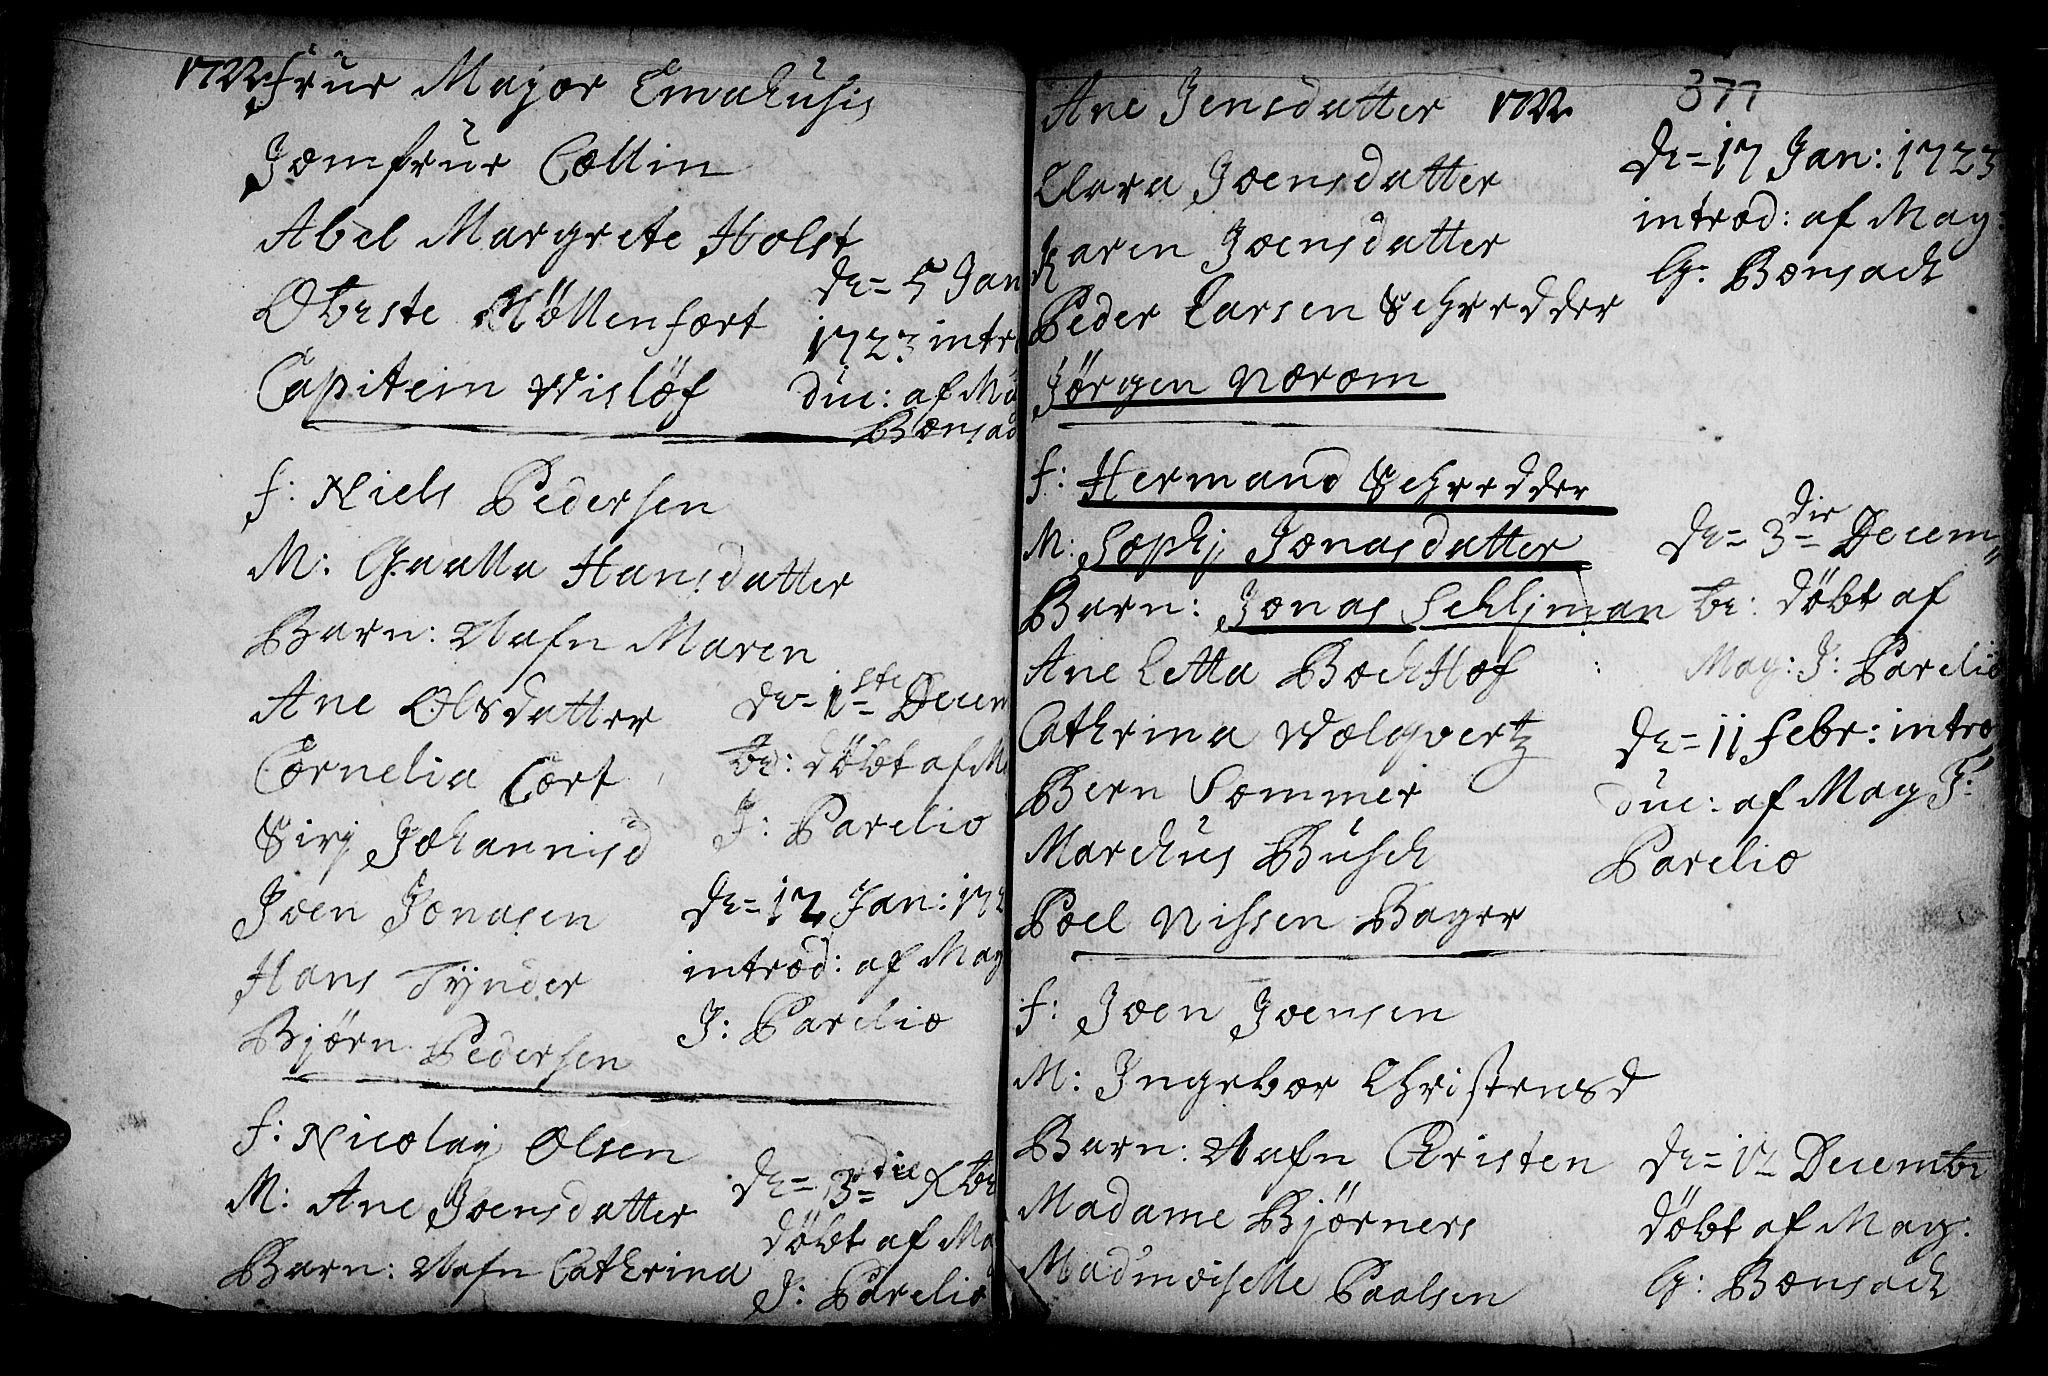 1722 Frue Major Emahusis
Jomfrue Collin
Abel Margrete Holst
Obriste Möllenfort
Capitein Wislöf
de= 5 Jan
1723 intro
duc: af Ma
Bonsac
f: Niels Pedersen
M: Gaalla Hansdatter
Barn: Nafn Maren
Ane Olsdatter
Cornelia Cort
Siri Johannisd
Joen Jonasen
Hans Tynder
Bjørn Pedersen
de= 1ste= Decem
br: döbt af M
J: Parelio
de= 12 Jan: 172
introd: af Mag
J: Parelio
f: Nicolay Olsen
M: Ane Joensdatter
Barn: Nafn Cathrina
de= 3die= Xbr
döbt af Ma
J: Parelio
377
Ane Jensdatter 1722
Clara Joensdatter
Karen Joensdatter
Peder Larsen Schredder
Jörgen Norom
de= 17 Jan: 1723
introd: af Mag:
G: Bonsack
f: Hermand Schredder
M: Sophj Jonasdatter
Barn: Jonas Sehljman
Ane Letta Bockhof
Cathrina Wolgvertz
Bern Sommer
Marckus Busch
Poel Nissen Bager
de= 3die= Decem=
br: döbt af
Mag: J: Parelio
de= 11 Febr: intro
duc: af Mag J:
Parelio
f: Joen Joensen
M: Ingebor Christensd
Barn: Nafn Christen
Madame Bjørners
Madmoiselle Paalsen
de= 12 Decembr
döbt af Mag:
G: Bonsack